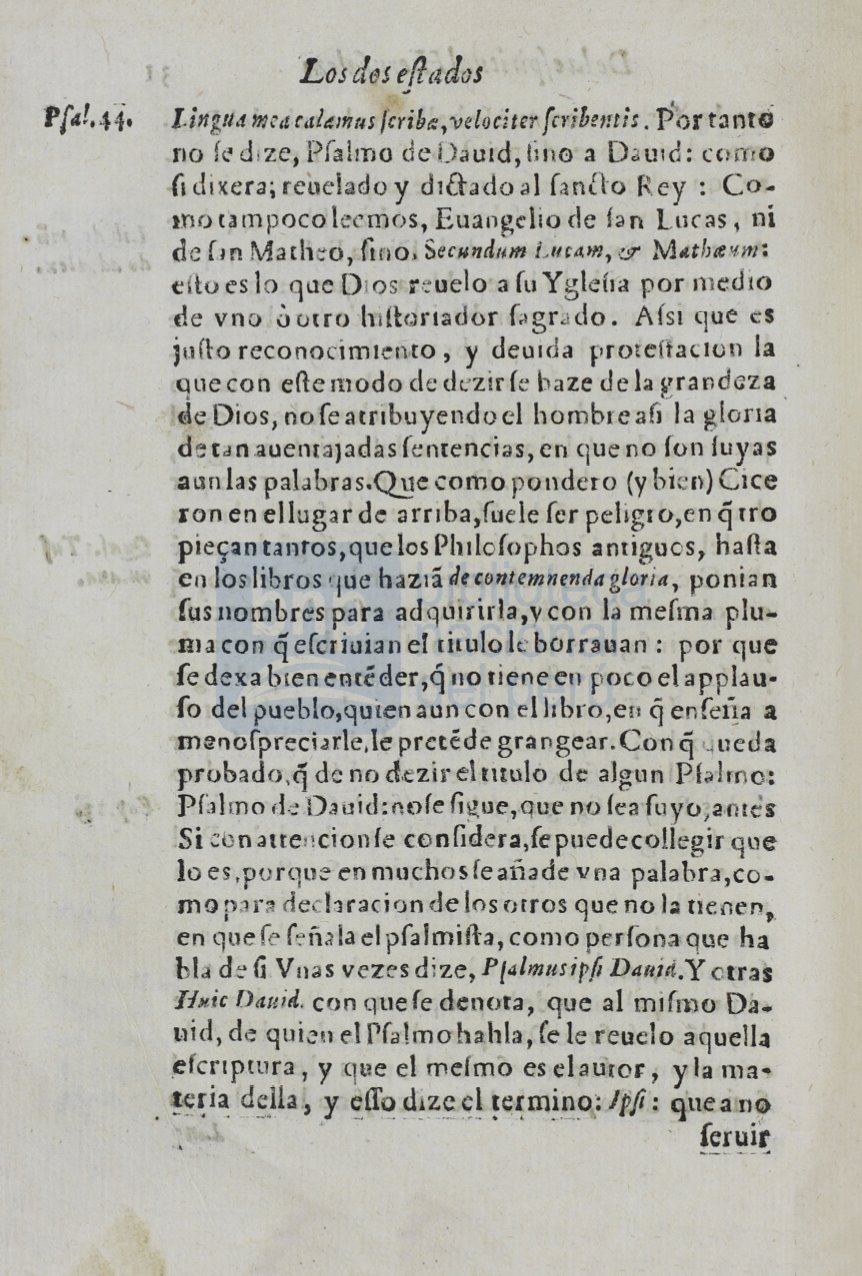 Los dos eſtados
Pſal. 44.
Lingua mea calamus ſcribæ, velociter ſcribentis. Por tanto
no ſe dize, Pſalmo de Dauid, ſino a Dauid: como
ſi dixera; reuelado y dictado al ſancto Rey : Co-
mo tampoco leemos, Euangelio de ſan Lucas, ni
de ſan Matheo, ſino. Secundum Lucam, & Mathæum:
eſto es lo que Dios reuelo a ſu Ygleſia por medio
de vno ò otro hiſtoriador ſagrado. Aſsi que es
juſto reconocimiento, y deuida proteſtacion la
que con eſte modo de dezir ſe haze de la grandeza
de Dios, no ſe atribuyendo el hombre aſi la gloria
de tan auentajadas ſentencias, en que no ſon ſuyas
aun las palabras. Que como pondero (y bien) Cice
ron en el lugar de arriba, ſuele ſer peligro, en q̃ tro
pieçan tantos, que los Philoſophos antiguos, haſta
en los libros que haziã de contemnenda gloria, ponian
ſus nombres para adquirirla, y con la meſma plu-
ma con q̃ eſcriuian el titulo le borrauan : por que
ſe dexa bien entẽder, q̃ no tiene en poco el applau-
ſo del pueblo, quien aun con el libro, en q̃ enſeña a
menoſpreciarle, le pretẽde grangear. Con q̃ queda
probado, q̃ de no dezir el titulo de algun Pſalmo:
Pſalmo de Dauid: no ſe ſigue, que no ſea ſuyo, antes
Si con attencion ſe conſidera, ſe puede collegir que
lo es, porque en muchos ſe añade vna palabra, co-
mo para declaracion de los otros que no la tienen,
en que ſe ſeñala el pſalmiſta, como perſona que ha
bla de ſi Vnas vezes dize, Pſalmus ipſi Dauid. Y otras
Huic Dauid. con que ſe denota, que al miſmo Da-
uid, de quien el Pſalmo habla, ſe le reuelo aquella
eſcriptura, y que el meſmo es el autor, y la ma-
teria della, y eſſo dize el termino: Ipſi: que a no
ſeruir